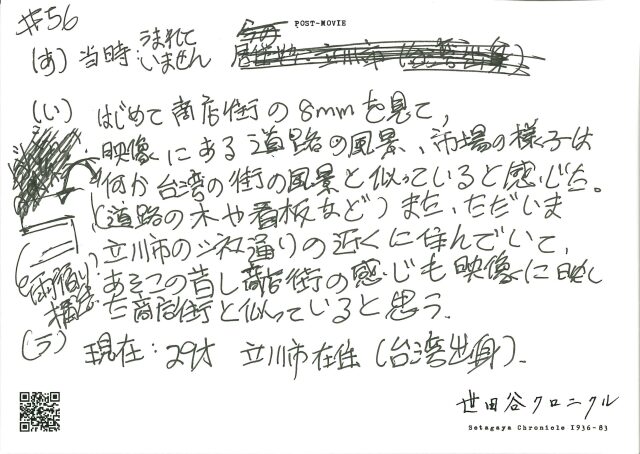 #56
POST-MOVIE
(あ) 当時：うまれていません
(い) はじめて商店街の8mmを見て、
映像にある道路の風景、市場の様子は
何か台湾の街の風景と似っていると感じた。
(道路の木や看板など) また、ただいま
立川市のシネマ通りの近くに住んでいて、
あそこの昔し商店街の感じも映像に映し
た商店街と似っていると思う。
雨宿り
構造
(う) 現在：29才 立川市在住 (台湾出身).
世田谷クロニクル
Setagaya Chronicle 1936-83